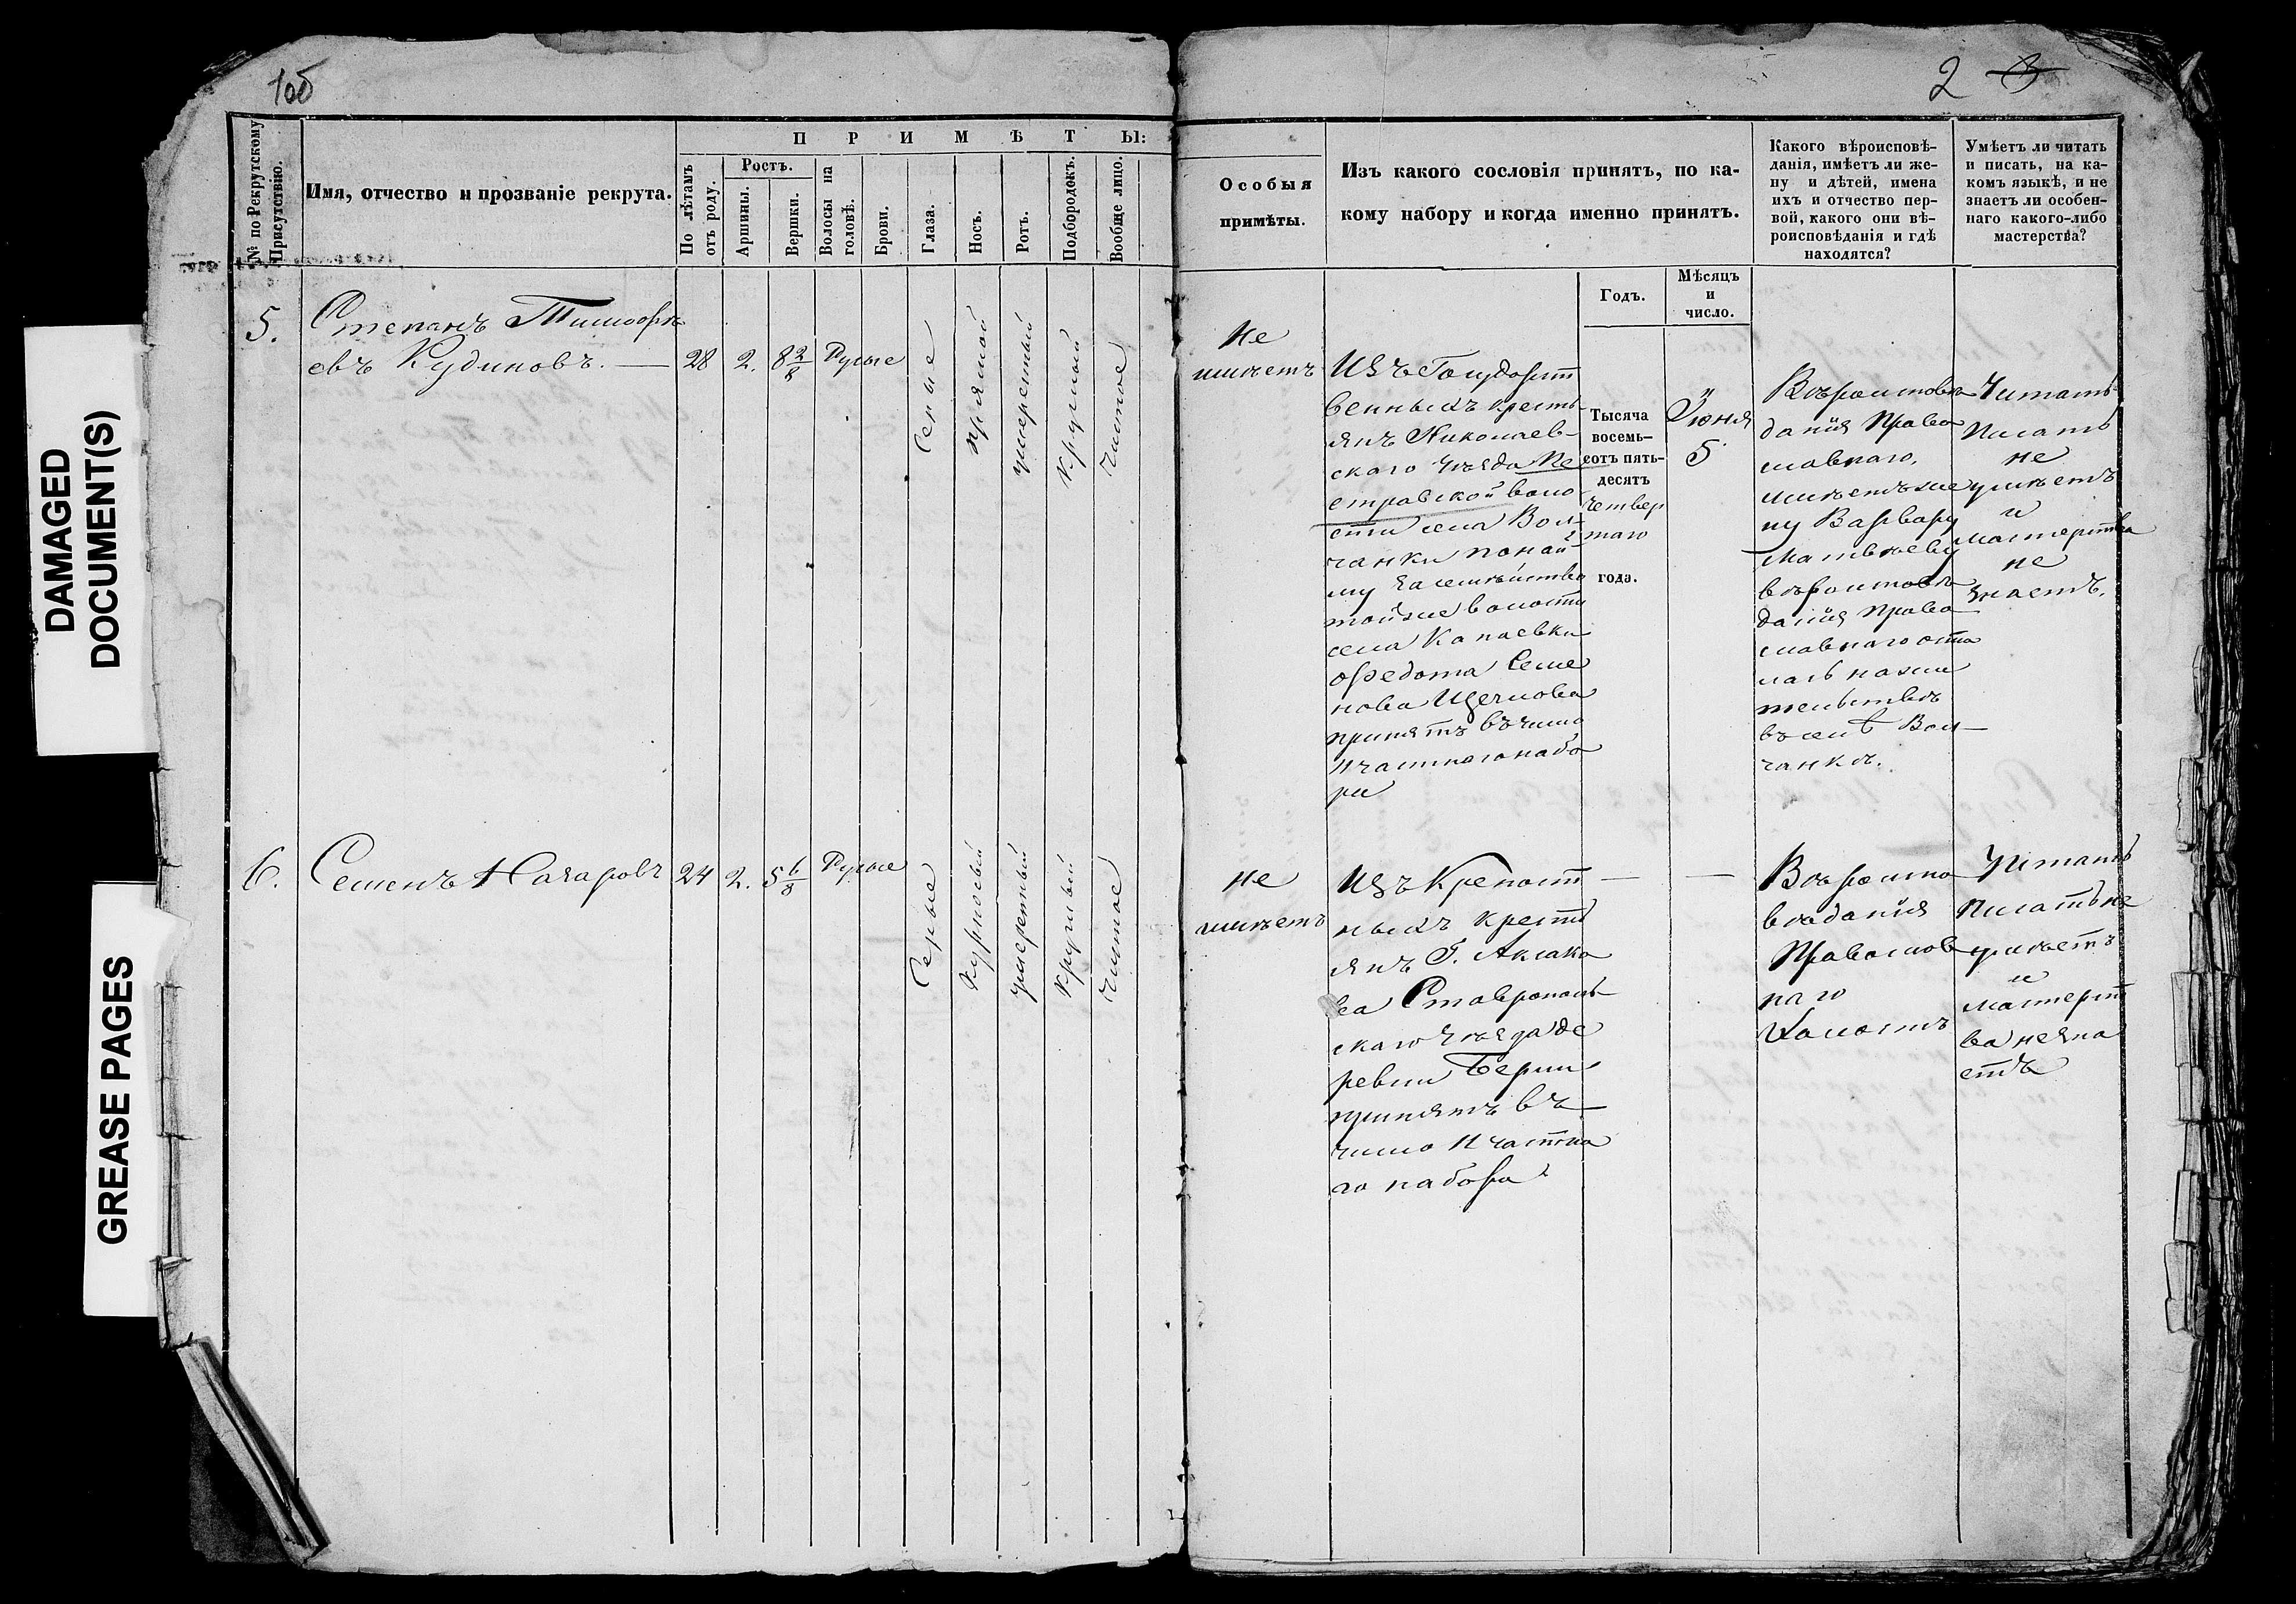 DAMAGED
DOCUMENT(S)
GREASE PAGES
1об
2
П Р И М Ѣ Т Ы:
№ по Рекрутскому
Присутствію.
Имя, отчество и прозваніе рекрута.
По лѣтамъ
отъ роду.
Ростъ.
Аршины.
Вершки.
Волосы на
головѣ.
Брови.
Глаза.
Носъ.
Ротъ.
Подбородокъ.
Вообще лицо.
Особыя
примѣты.
Изъ какого сословія принятъ, по ка-
кому набору и когда именно принятъ.
Годъ.
Мѣсяцъ
и
число.
Какого вѣроисповѣ-
данія, имѣетъ ли же-
ну и дѣтей, имена
ихъ и отчество пер-
вой, какого они вѣ-
роисповѣданія и гдѣ
находятся?
Умѣетъ ли читать
и писать, на ка-
комъ языкѣ, и не
знаетъ ли особен-
наго какого-либо
мастерства?
5.
Степанъ Тимофѣ
евъ Кудиновъ. —
28
2.
8 2/8
Русые
Серые
прямой
умеретный
круглый
чистое
Не
имѣетъ
Изъ Государст
венныхъ кресть
янъ Николаев-
скаго Уѣзда Пе
стравской воло
сти села Вол-
чанки по най
му за семѣйство
тойже волости
села Капаевки
Федота Семе
нова
принятъ въ число
II частнаго набо
ра
Тысяча
восемь-
сотъ пять-
десятъ
четвер
таго
года.
Іюня
5
Вѣроисповѣ
данія Право
славнаго,
имѣетъ же
ну Варвару
Матвѣеву
вѣроисповѣ
данія Право
славнаго оста
лась на жи
тельствѣ
въ селѣ Вол-
чанкѣ.
Читать
Писать
не
умѣетъ
и
мастерства
не
знаетъ.
6.
Семенъ Назаровъ
24
2.
5 6/8
Русые
Серые
Курносый
умеретный
круглый
чистое
не
имѣетъ
Изъ Крепост
ныхъ кресть
янъ Г. Аксако
ва Ставрополь
скаго Уѣзда де
ревни
принятъ въ
число II частна
го набора
—
—
Вѣроиспо
вѣданія
Православ
наго
Холостъ
Читать
Писать не
умѣетъ
и
мастерст
ва незна
етъ